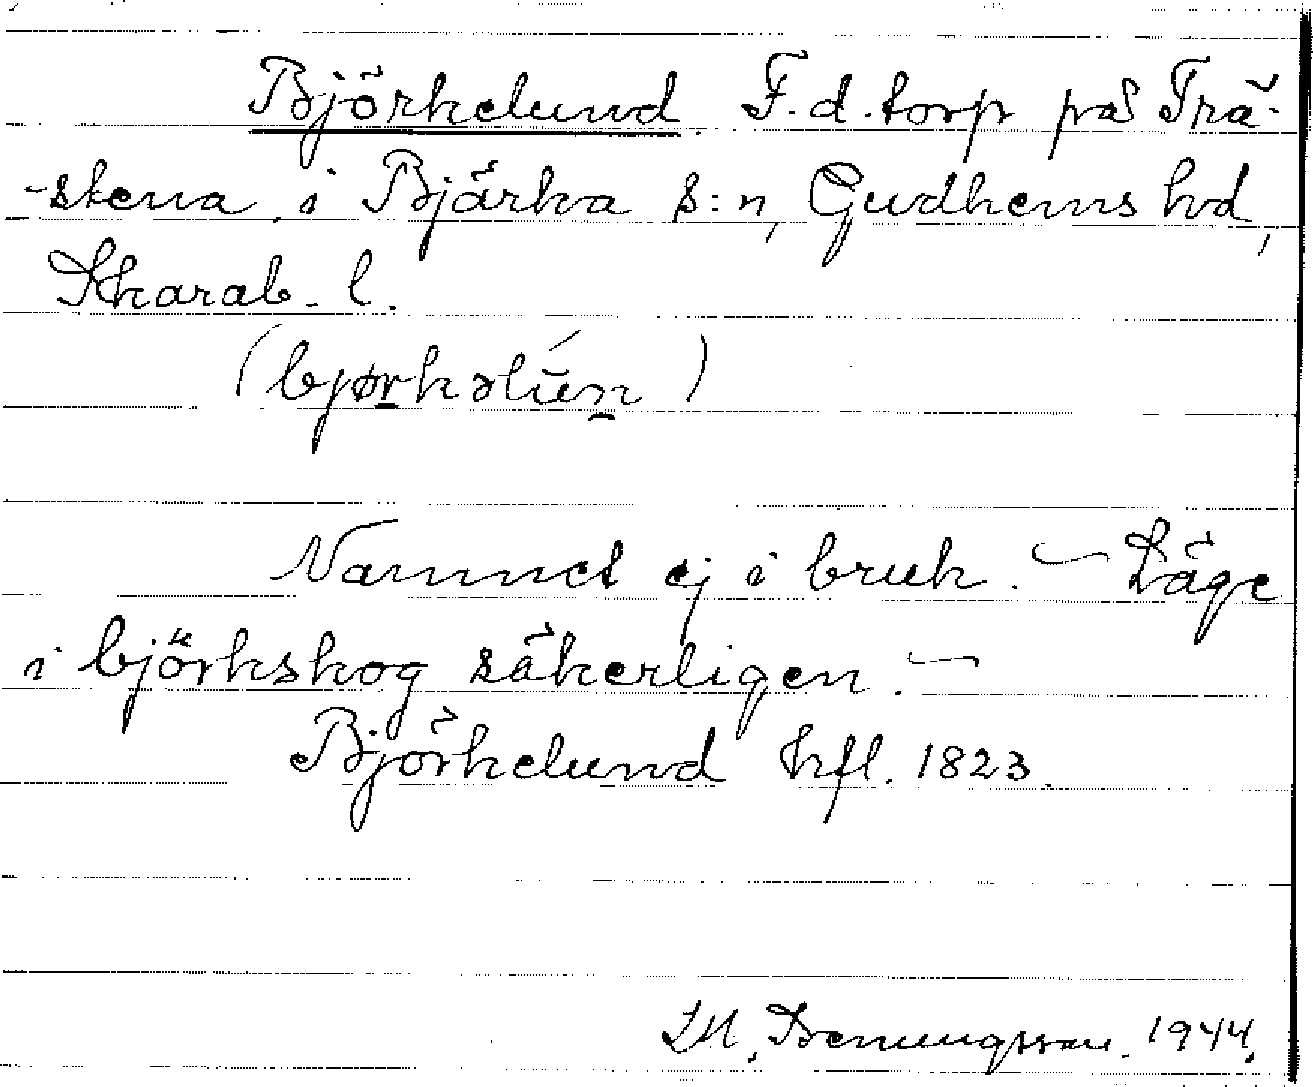 Björkelund F.d. torp på Trä-
-stena i Bjärka s:n, Gudhems hd,
Skarab. l.
(bjørkəlún)
Namnet ej i bruk. – Läge
i björkskog säkerligen. –
Björkelund hfl. 1823.
1944.